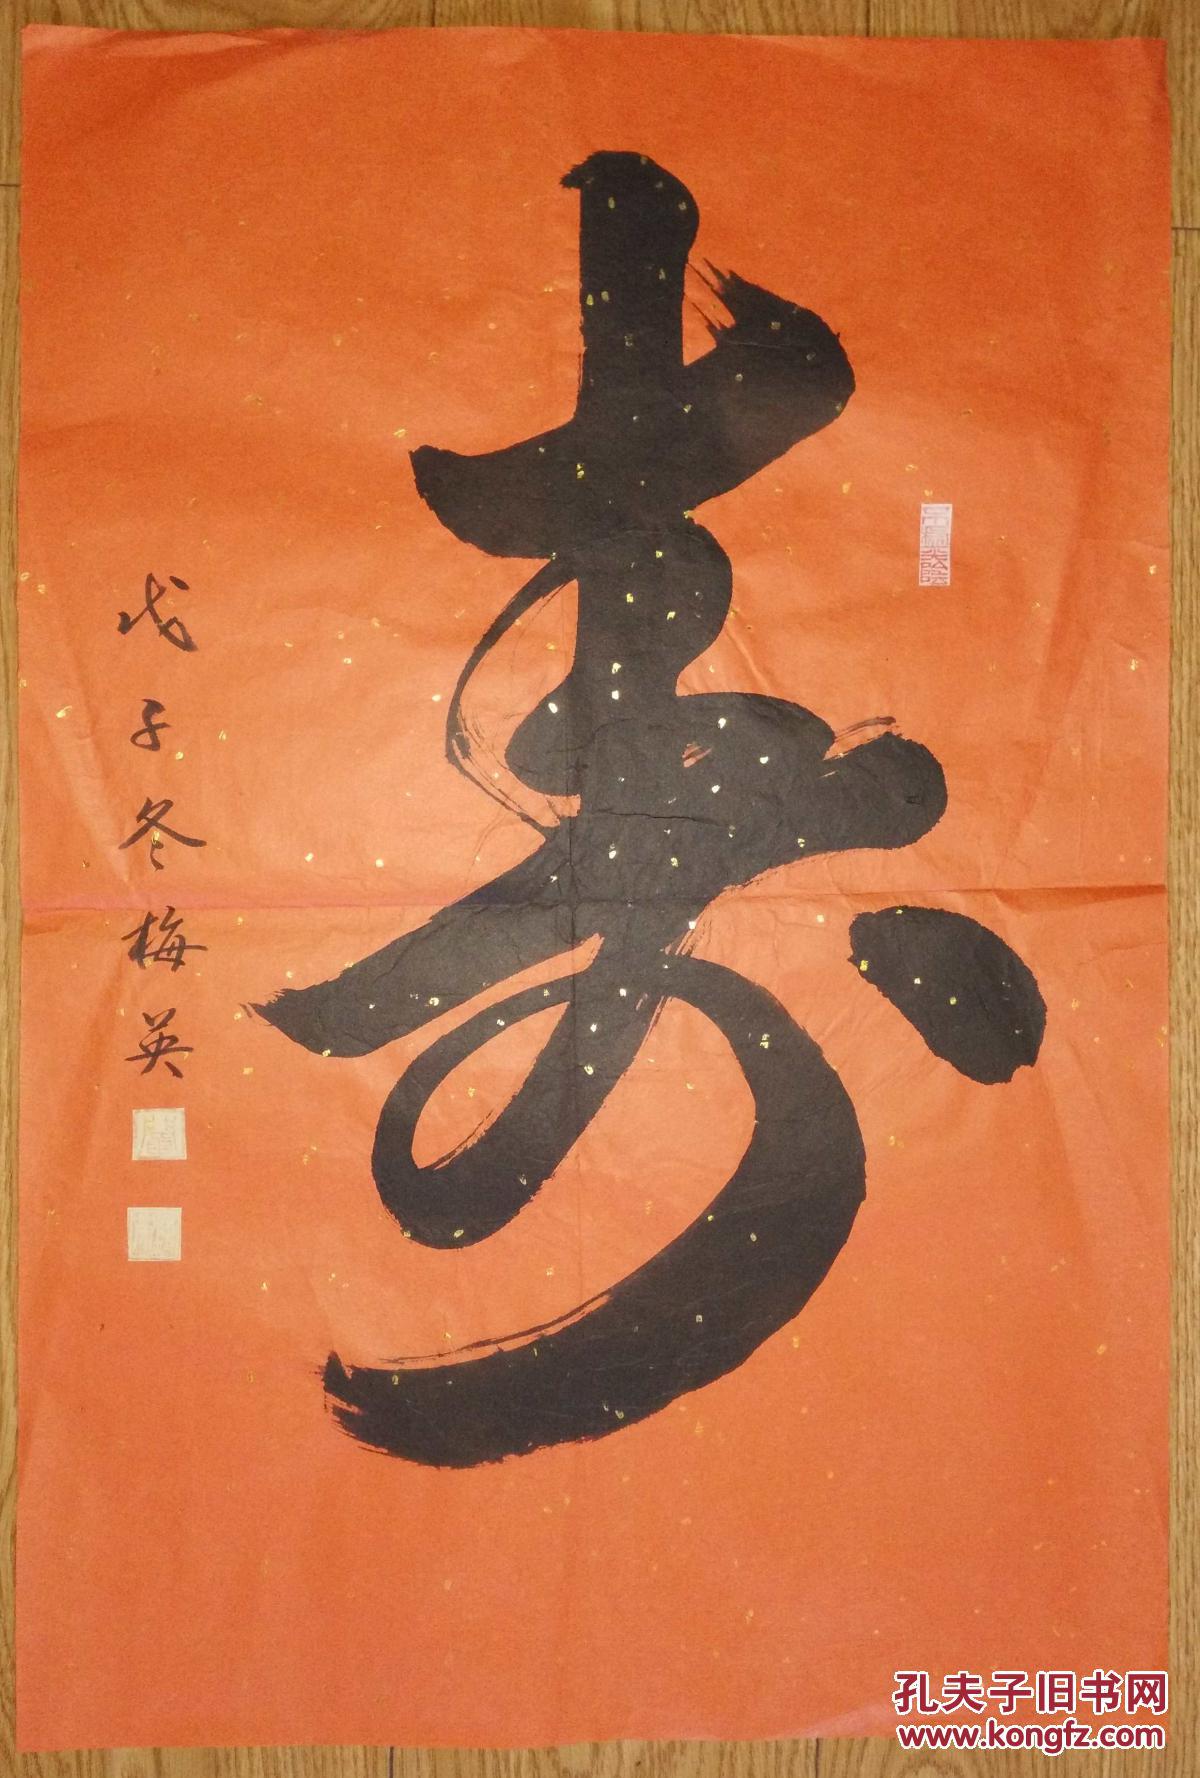 寿
戊子冬梅英
孔夫子旧书网
www.kongfz.com